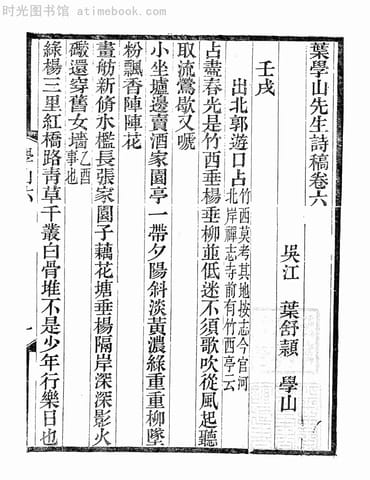 时光图书馆 atimebook.com
葉學山先生詩稿卷六
吳江 葉舒穎 學山
壬戌
出北郭遊口占 竹西莫考其地按志今官河
北岸禪志寺前有竹西亭云
占盡春光是竹西垂楊垂柳並低迷不須歌吹從風起聽
取流鶯歇又嗁
小坐壚邊賣酒家園亭一帶夕陽斜淡黃濃綠重重柳墜
粉飄香陣陣花
畫舫新脩水檻長張家園子藕花塘垂楊隔岸深深影火
礮還穿舊女墻 乙酉
事也
綠楊三里紅橋路靑草千叢白骨堆不是少年行樂日也